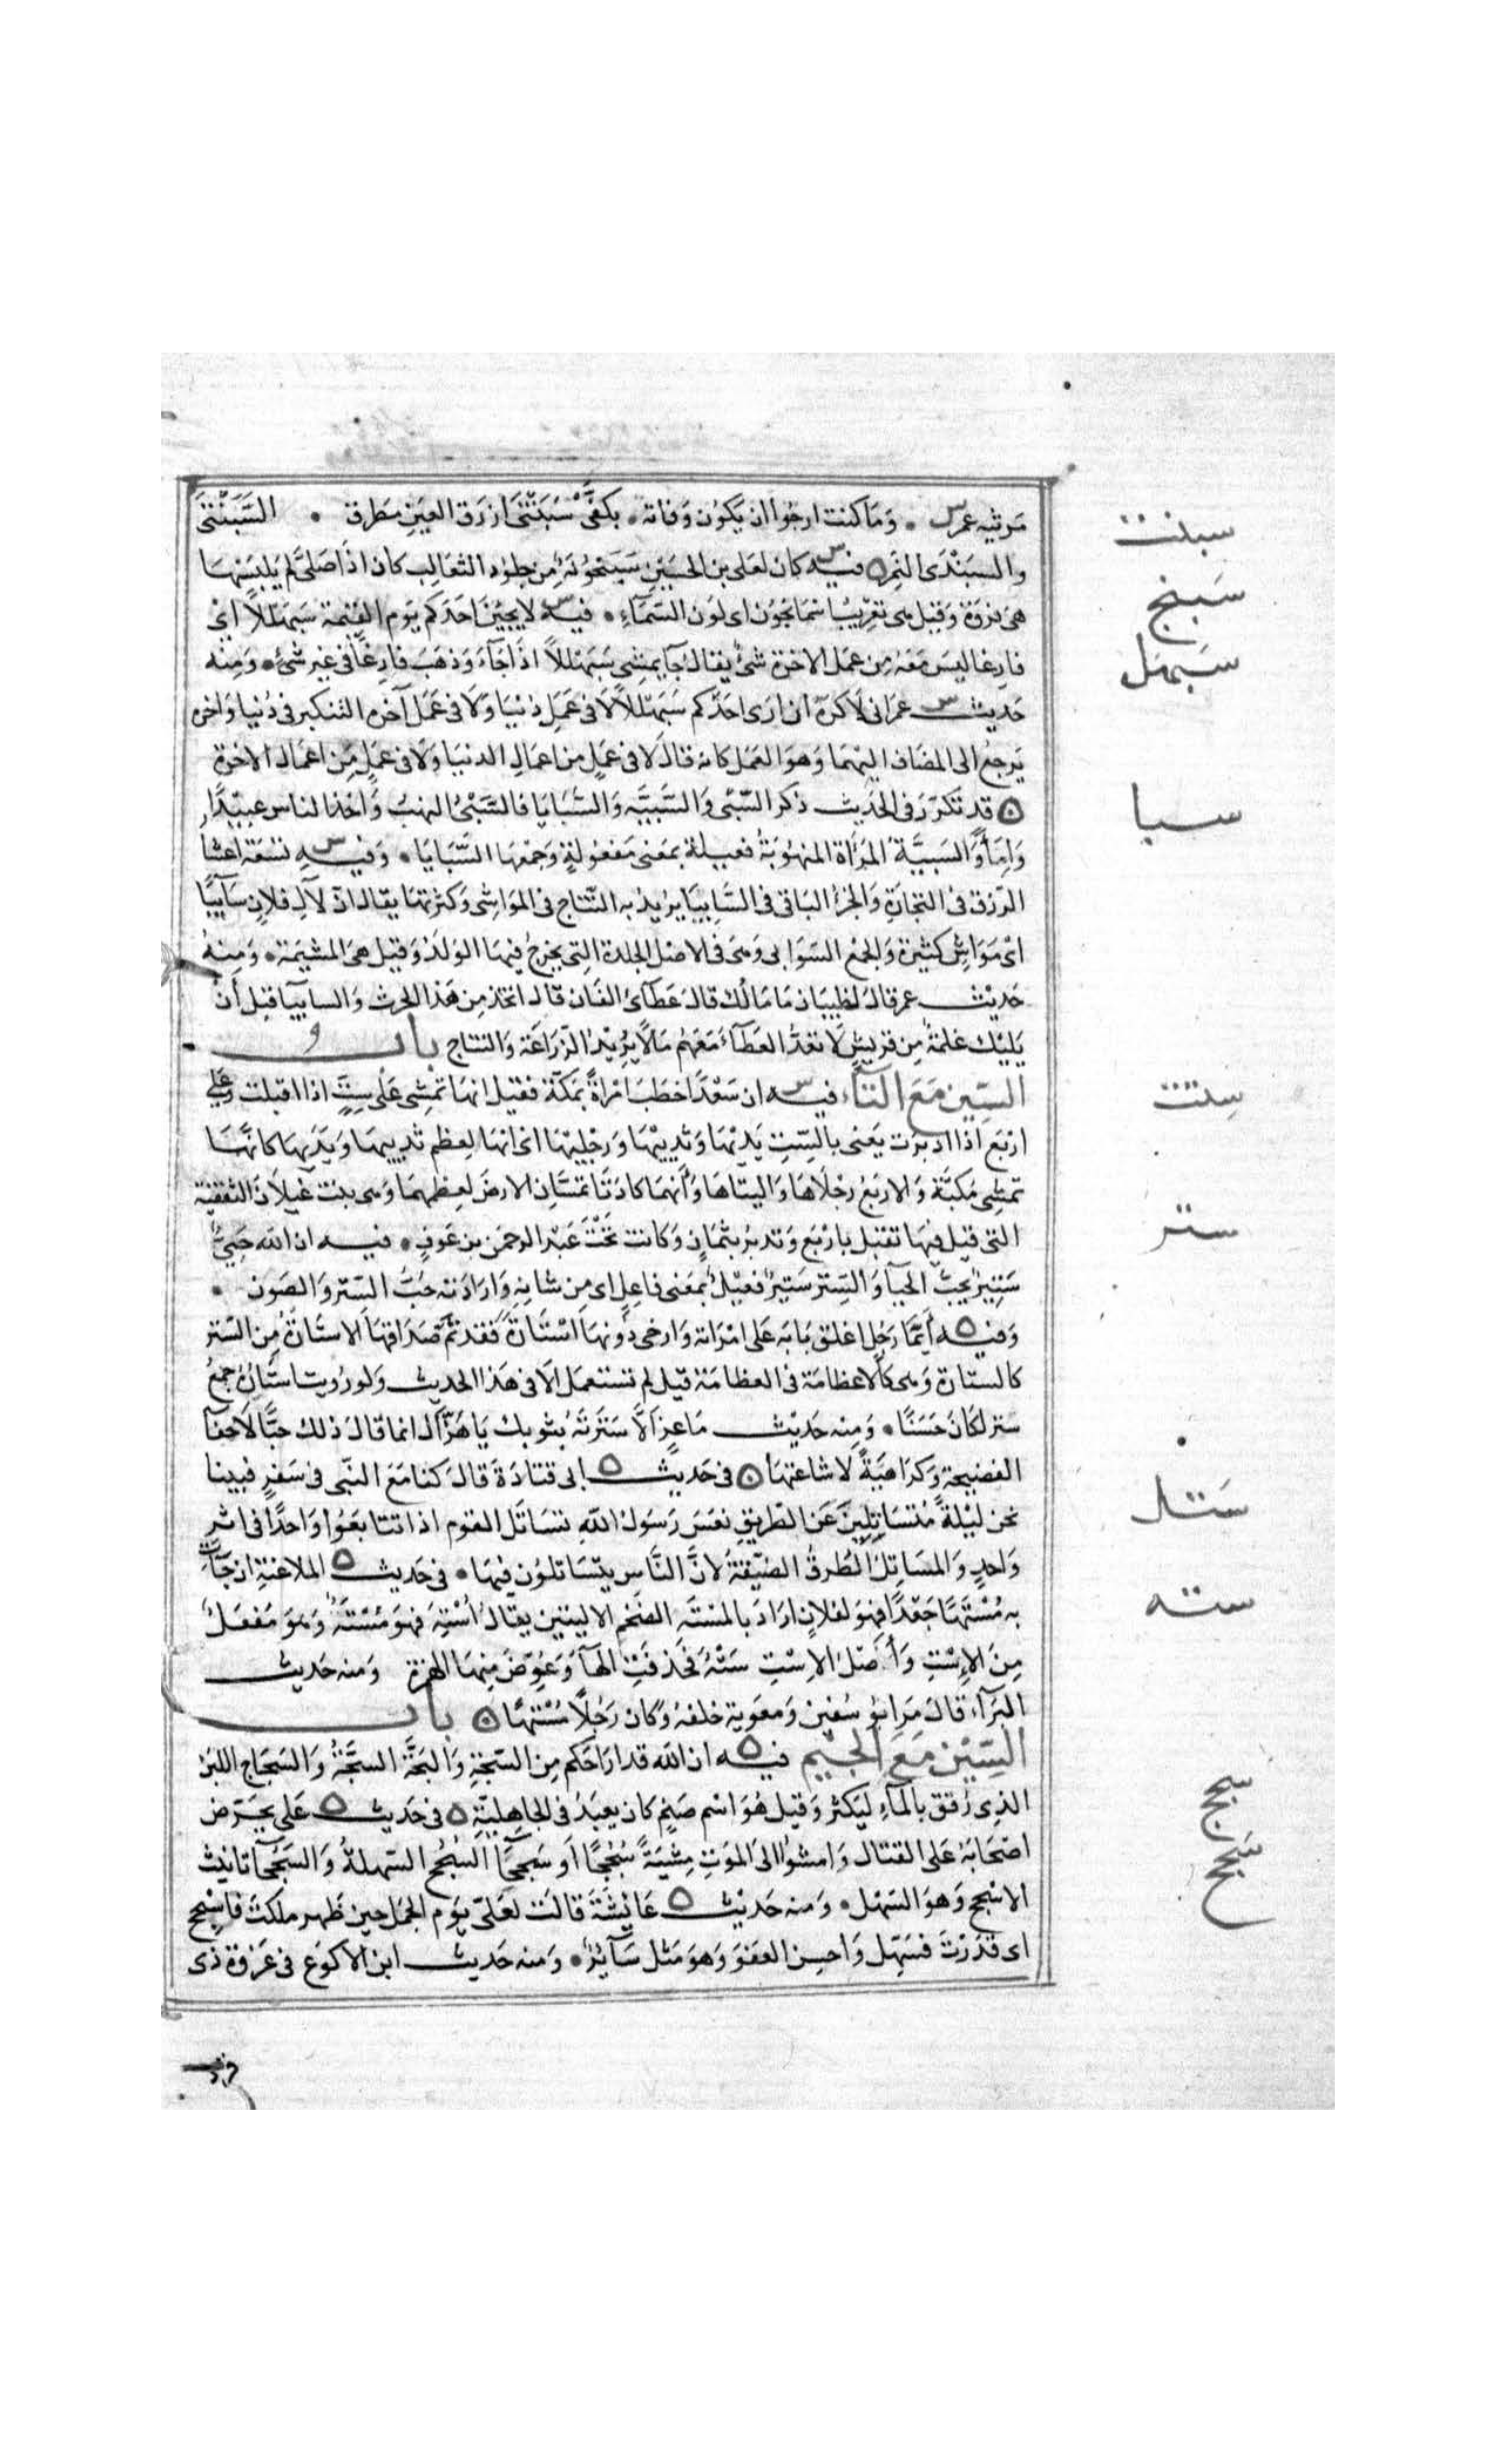 مرثيه عمر س • وَمَا كنت ارجُوا ان يَكُون وَفاته • بكفَّى سَبَنْتَى ازرَق العَين مطرق • السَّبَنْتَى
سبنت
والسبَنْدَى النَمِر ه فيه س كان لعَلى بن الحسَين سَبَنْجُونَةٌ مِن جلوُد الثعَالِب كان اذَا صَلى لَم يَلبَسْهَا
سَبنج
هىَ فروَة وَقيل هى تعَرِيبُ اسمَا نجُون اى لون السَّمَآءِ • فيه س لا يجيئنَّ احَدَكم يَوم القِيٰمة سَبَهْلَلاً اىْ
فارِغا ليسَ مَعَهُ مِن عمَل الاخرَة شىٌ يقال جَا يمشِى سَبَهْللاً اذَا جَآءَ وَذهَب فارِغًا فى غير شىءٍ • وَمِنه
سَبهَل
حَديث س عمَر انى لاكرَهُ ان ارَى احَدكم سَبَهْللاً لا فى عَمَل دُنيَا وَلاَ فى عَمَل آخره التنكير فى دُنيا وَاخره
يَرجعُ الى المضَاف اليْهمَا وَهوَ العَمَل كانه قالَ لا فى عَمَلٍ من اعمَالِ الدنيَا وَلا فى عمَلٍ مِن اعمَال الاخرَة
ه قد تكرّرَ فى الحَديث ذكر السَّبْى وَالسَّبيَّه وَالسَّبَايَا فالسَّبْىُ النهبُ وَاخذ الناس عبِيْدًا
سبا
وَامَاً وَالسَبيَّة المَرأة المنهُوبَةُ فعيلة بمَعنى مَفعُولةٍ وَجمْعهَا السَّبَايَا • وَفيه س تسعَة اعشَا
الرّزق فى التجارَةِ وَالجزءُ البَاقى فى السَّابِيَا يريْدُ به النّتاج فى الموَاشِى وَكثرتهَا يقال انّ لآلِ فلانٍ سَآبِيَآ
اى مَوَاشٍ كثيرَة وَالجمْع السّوَابى وَهى فى الاصْل الجلدة التِى يخرجُ فيهَا الوَلَدُ وَقيل هىَ المشيمَة • وَمِنهُ
حَديث عمر قالَ لظبيَان مَا مَالُك قالَ عَطآئ الفَان قالَ اتخذ مِن هَذا الحرث وَالسابيَا قبل أنْ
يَليْك غلمَةٌ مِن قريْشٍ لاَ تعَدُّ العَطآءَ مَعَهُم مَالاً يُرِيْدُ الزّرَاعَة وَالنتاج بَاب
السِّين مَعَ التَّاء فيه س ان سَعْدًا خطَبَ امْرَاةً بمَكّة فقيل انهَا تمشِى عَلى سِتٍّ اذا اقبلت وَعَلى
ستت
ارْبَع اذا ادبرَت يَعنى بالسِّت يَدَيْهَا وَثديَيْهَا وَرَجْليْهَا اى انهَا لِعظم ثدييهَا وَيَدَيهَا كانهَا
تمشِى مُكِبَّة وَالاربَعُ رجْلاَهَا وَاليتَاهَا وَأنهمَا كادَتا تمَسَّان الارضَ لعِظمِهمَا وَهى بنت غيلاَن الثقفيَّة
التى قيلَ فيهَا تقبل بارْبَع وَتدبرُ بثمَانٍ وَكانت تَحْتَ عَبْد الرحمَن بن عَوفٍ • فيه ان الله حَيىٌّ
ستر
سَتيرٌ يحِبُّ الحيَآ وَالسِّتر سَتيرٌ فعيْلٌ بمَعنى فاعِلٍ اى مِن شانهِ وَارَادَته حُبُّ السّتر وَالصّون •
وَفيه ه أيّمَا رَجُلٍ اغلق بَابَه عَلى امْرَاته وَارخى دُونهَا اسْتَارَةً فقد تمَّ صَدَاقهَا الاستَارَةُ مِن السّتر
كالستَارَة وَهى كالاعظامَة فى العظامَة قيل لم تستعمَل الاّ فى هَذا الحَديث وَلو رُويت استَارُهُ جَمعُ
ستر لكانَ حَسَنًا • وَمِنه حَديْث مَاعِزٍ أَلاَّ سَتَرْتَهُ بثوبك يَا هَزّالُ انما قالَ ذلكَ حبًّا لاخفآ
الفضيحة وَكرَاهِيَةً لاشاعَتهَا ه فى حَديث ه ابى قتَادَةَ قالَ كنا مَعَ النّبى فى سَفرٍ فبَينا
نحن ليْلةً مُتسَاتِليْنَ عَن الطّريقِ نعَسَ رَسُولُ اللهِ تسَاتَل القوم اذا تتابَعُوا وَاحدًا فى اثر
سَتل
وَاحدٍ وَالمسَاتِلُ الطُرقُ الضيّقةُ لانَّ النَّاس يتسَاتلُون فيهَا • فى حَديث ه الملاعَنةِ ان جَاَت
به مُسْتَهًا جَعْدًا فهوَ لفلانٍ ارَادَ بالمسْتَهِ الضَخم الاليتين يقالُ أُسْتِهَ فهوَ مُسْتَهٌ وَهوَ مُفعَلٌ
سته
مِنَ الاِسْتِ وَأصْلُ الاِسْتِ سَتْهٌ فحُذفَتِ الهَآ وَعُوّضَ مِنهَا الهمزة وَمنه حَديث
البَرَآء قالَ مَرَّ ابُو سُفين وَمعَوية خلفهُ وَكان رَجُلاً مُسْتَهًا ه بَاب
السِّيْن مَعَ الجِيْم فيه ه ان الله قد ارَاحَكم مِن السّجّةِ وَالبَجَّة السجَّةُ وَالسَجَاج اللبَن
سجج
الذِى رُقق بالمآءِ ليَكثر وَقيل هُوَ اسْم صَنمٍ كان يعبَدُ فى الجَاهِليّةِ ه فى حَديث ه عَلى يحَرّض
اصْحَابَهُ عَلى القتَال وَامشُوا الى المَوَتِ مِشْيَةً سُجُحًا أو سَجْحَآ السُّجُح السّهلةُ وَالسَجْحَآ تانيث
سجح
الاسْجح وَهوَ السّهْل • وَمنه حَديث ه عَايْشَةَ قالَت لعَلىّ يَوم الجمَل حِين ظَهر ملكتَ فاسْجِح
اى قدَرْتَ فسَهّل وَاحسِن العَفوَ وَهوَ مَثل سَآئرٌ • وَمنه حَديث ابن الاكوَع فى غَزوَة ذى